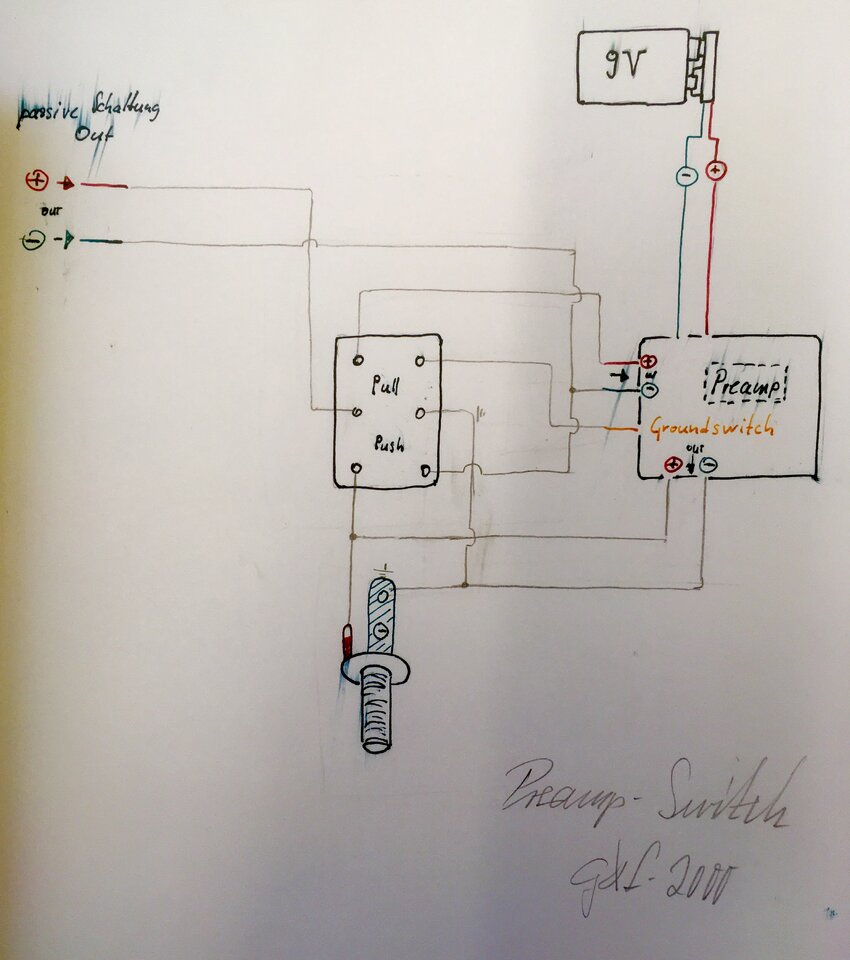 9V
passive Schaltung
Out
+
-
+
OUT
-
Pull
Push
+
IN
-
Preamp
Groundswitch
OUT
+
-
-
Preamp-Switch